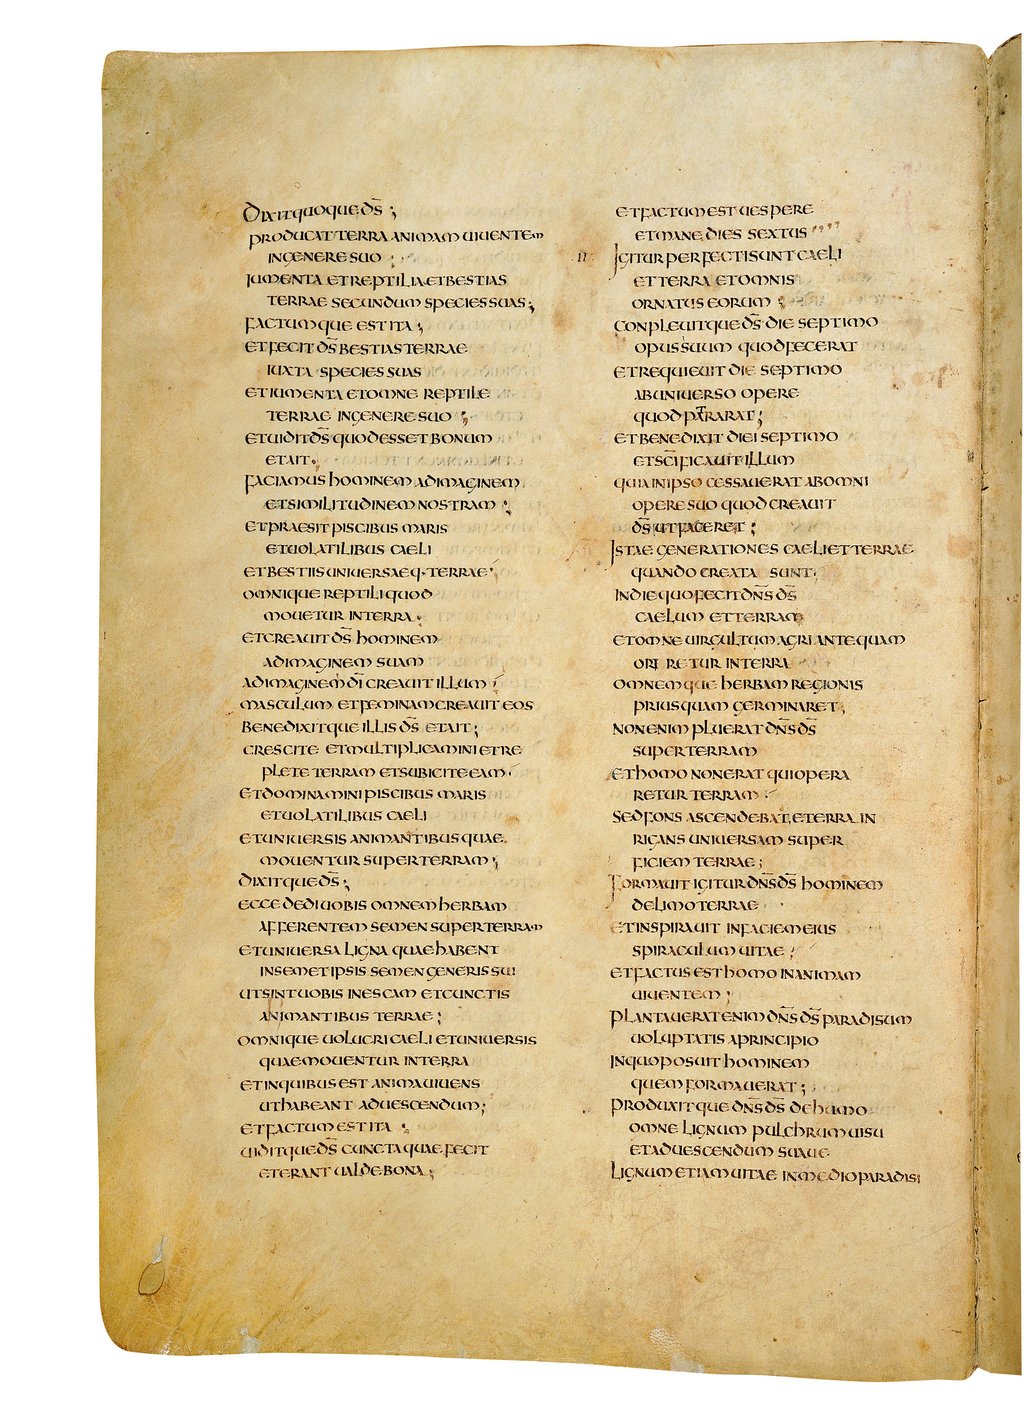 Dixit quoque d̄s ;
producat terra animam uiuentem
in genere suo
iumenta et reptilia et bestias
terrae secundum species suas ;
factumque est ita ;
et fecit d̄s bestias terrae
iuxta species suas
et iumenta et omne reptile
terrae in genere suo ;
et uidit d̄s quod esset bonum
et ait .
faciamus hominem ad imaginem
et similitudinem nostram ;
et praesit piscibus maris
et uolatilibus caeli
et bestiis uniuersaeq· terrae
omnique reptili quod
mouetur in terra .
et creauit d̄s hominem
ad imaginem suam
ad imaginem d̄i creauit illum
masculum et feminam creauit eos
benedixitque illis d̄s et ait ;
crescite et multiplicamini et re
plete terram et subicite eam .
et dominamini piscibus maris
et uolatilibus caeli
et uniuersis animantibus quae
mouentur super terram ;
dixitque d̄s ;
ecce dedi uobis omnem herbam
afferentem semen super terram
et uniuersa ligna quae habent
in semetipsis semen generis sui
ut sint uobis in escam et cunctis
animantibus terrae ;
omnique uolucri caeli et uniuersis
quae mouentur in terra
et in quibus est anima uiuens
ut habeant ad uescendum ;
et factum est ita
uiditque d̄s cuncta quae fecit
et erant ualde bona ;
et factum est uespere
et mane dies sextus
II Igitur perfecti sunt caeli
et terra et omnis
ornatus eorum
conpleuitque d̄s die septimo
opus suum quod fecerat
et requieuit die septimo
ab uniuerso opere
quod patrarat ;
et benedixit diei septimo
et sc̄ificauit illum
quia in ipso cessauerat ab omni
opere suo quod creauit
d̄s ut faceret ;
Istae generationes caeli et terrae
quando creata sunt
in die quo fecit dn̄s d̄s
caelum et terram
et omne uirgultum agri antequam
ori retur in terra
omnemque herbam regionis
priusquam germinaret ;
non enim pluerat dn̄s d̄s
super terram
et homo non erat qui opera
retur terram
sed fons ascendebat e terra in
rigans uniuersam super
ficiem terrae ;
formauit igitur dn̄s d̄s hominem
de limo terrae
et inspirauit in faciem eius
spiraculum uitae
et factus est homo in animam
uiuentem ;
plantauerat enim dn̄s d̄s paradisum
uoluptatis a principio
in quo posuit hominem
quem formauerat ;
produxitque dn̄s d̄s de humo
omne lignum pulchrum uisu
et ad uescendum suaue
lignum etiam uitae in medio paradisi